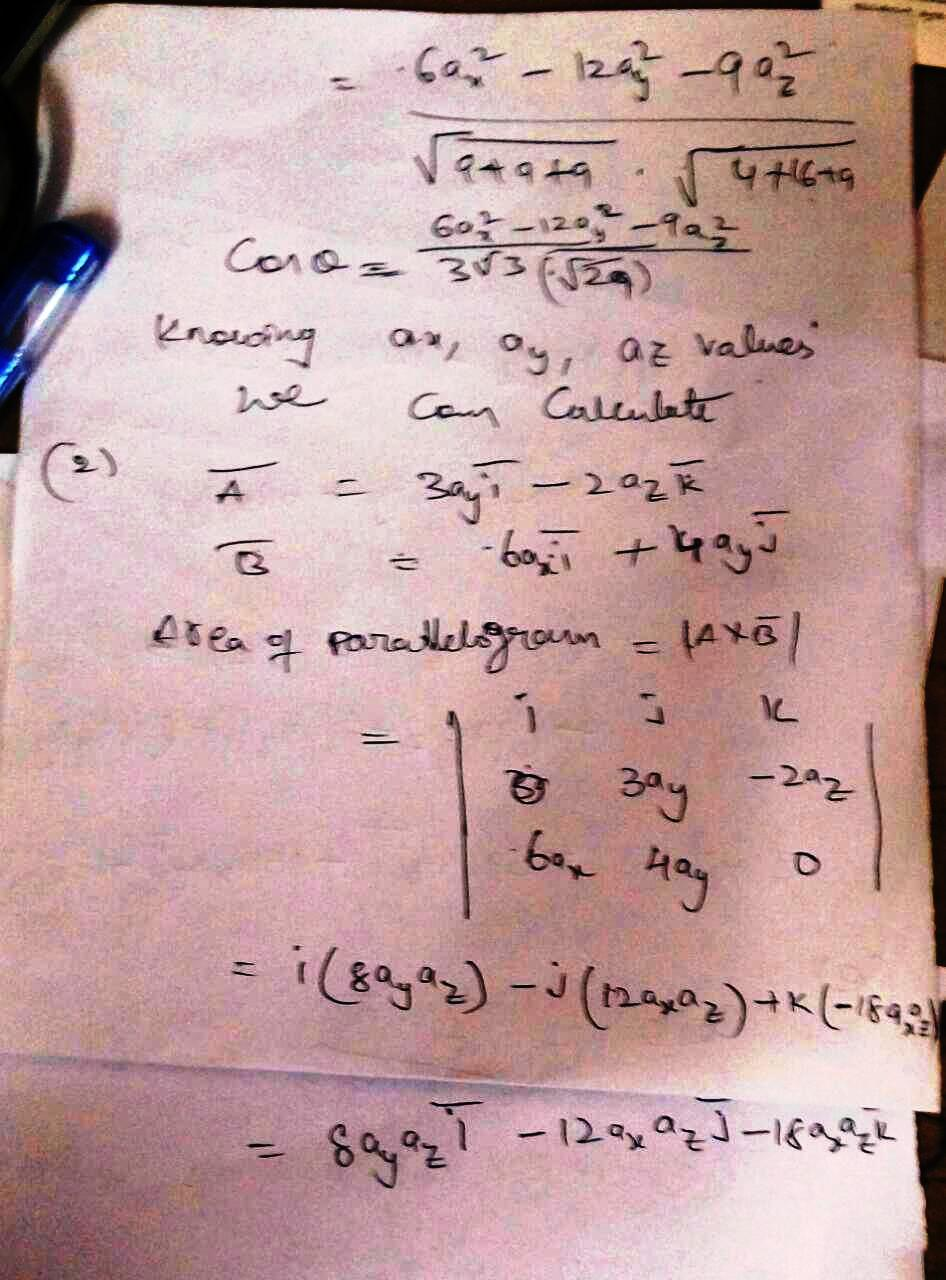 = 6aₓ² − 12a_y² − 9a_z²
√9+9+9 . √4+16+9
Cos θ = 6aₓ² − 12a_y² − 9a_z²
3√3 (√29)
Knowing ax, ay, az values
we can Calculate
(2) A̅ = 3a_y i̅ − 2a_z k̅
B̅ = 6aₓ i̅ + 4a_y j̅
Area of parallelogram = |A×B̅|
i j k
= 3ay −2az
6ax 4ay 0
= i(8a_y a_z) − j(12aₓ a_z) + k(−18aₓ a_z)
= 8a_y a_z i̅ − 12aₓ a_z j̅ − 18aₓ a_z k̅